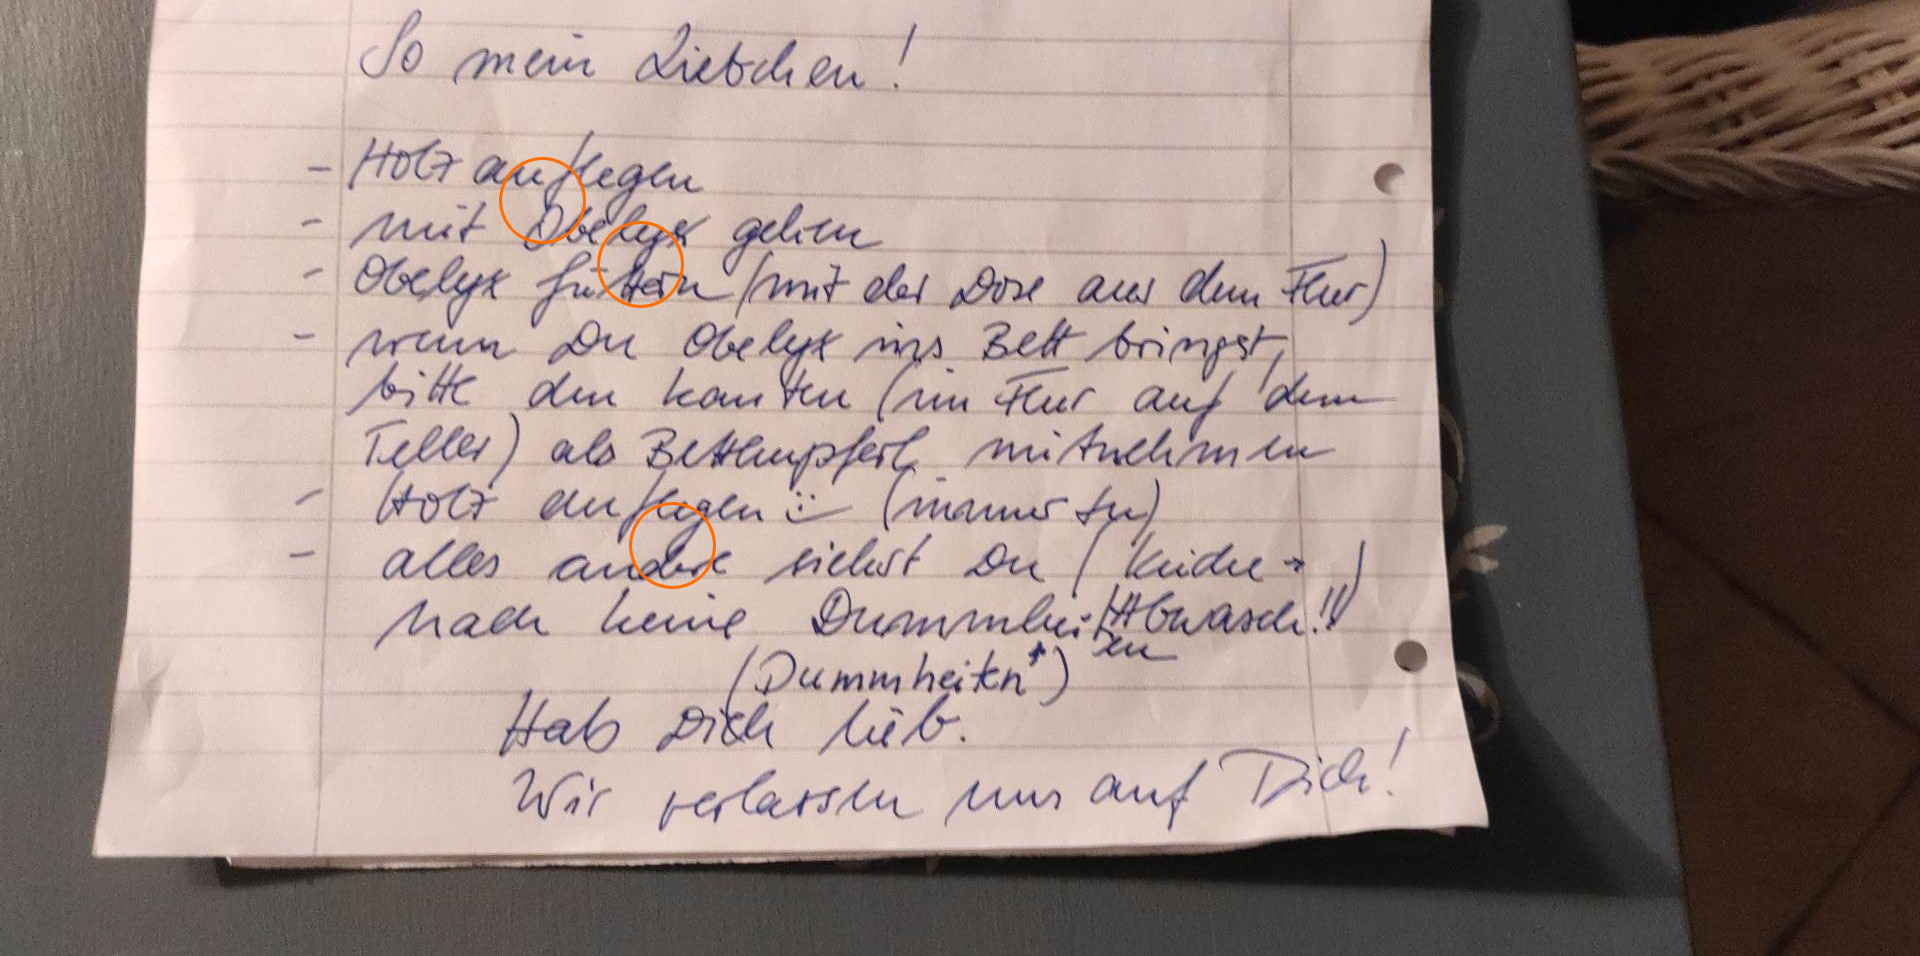 So mein Liebchen!
- Holz auflegen
- mit Obelyx gehen
- Obelyx füttern (mit der Dose aus dem Flur)
- wenn Du Obelyx ins Bett bringst,
bitte den Kanten (im Flur auf dem
Teller) als Betthupferl mitnehmen
- Holz auflegen :) (immer zu)
- alles andere siehst Du (Küche →
Mach keine Dummheit Abwasch!!)
en
(Dummheiten*)
Hab Dich lieb.
Wir verlassen uns auf Dich!